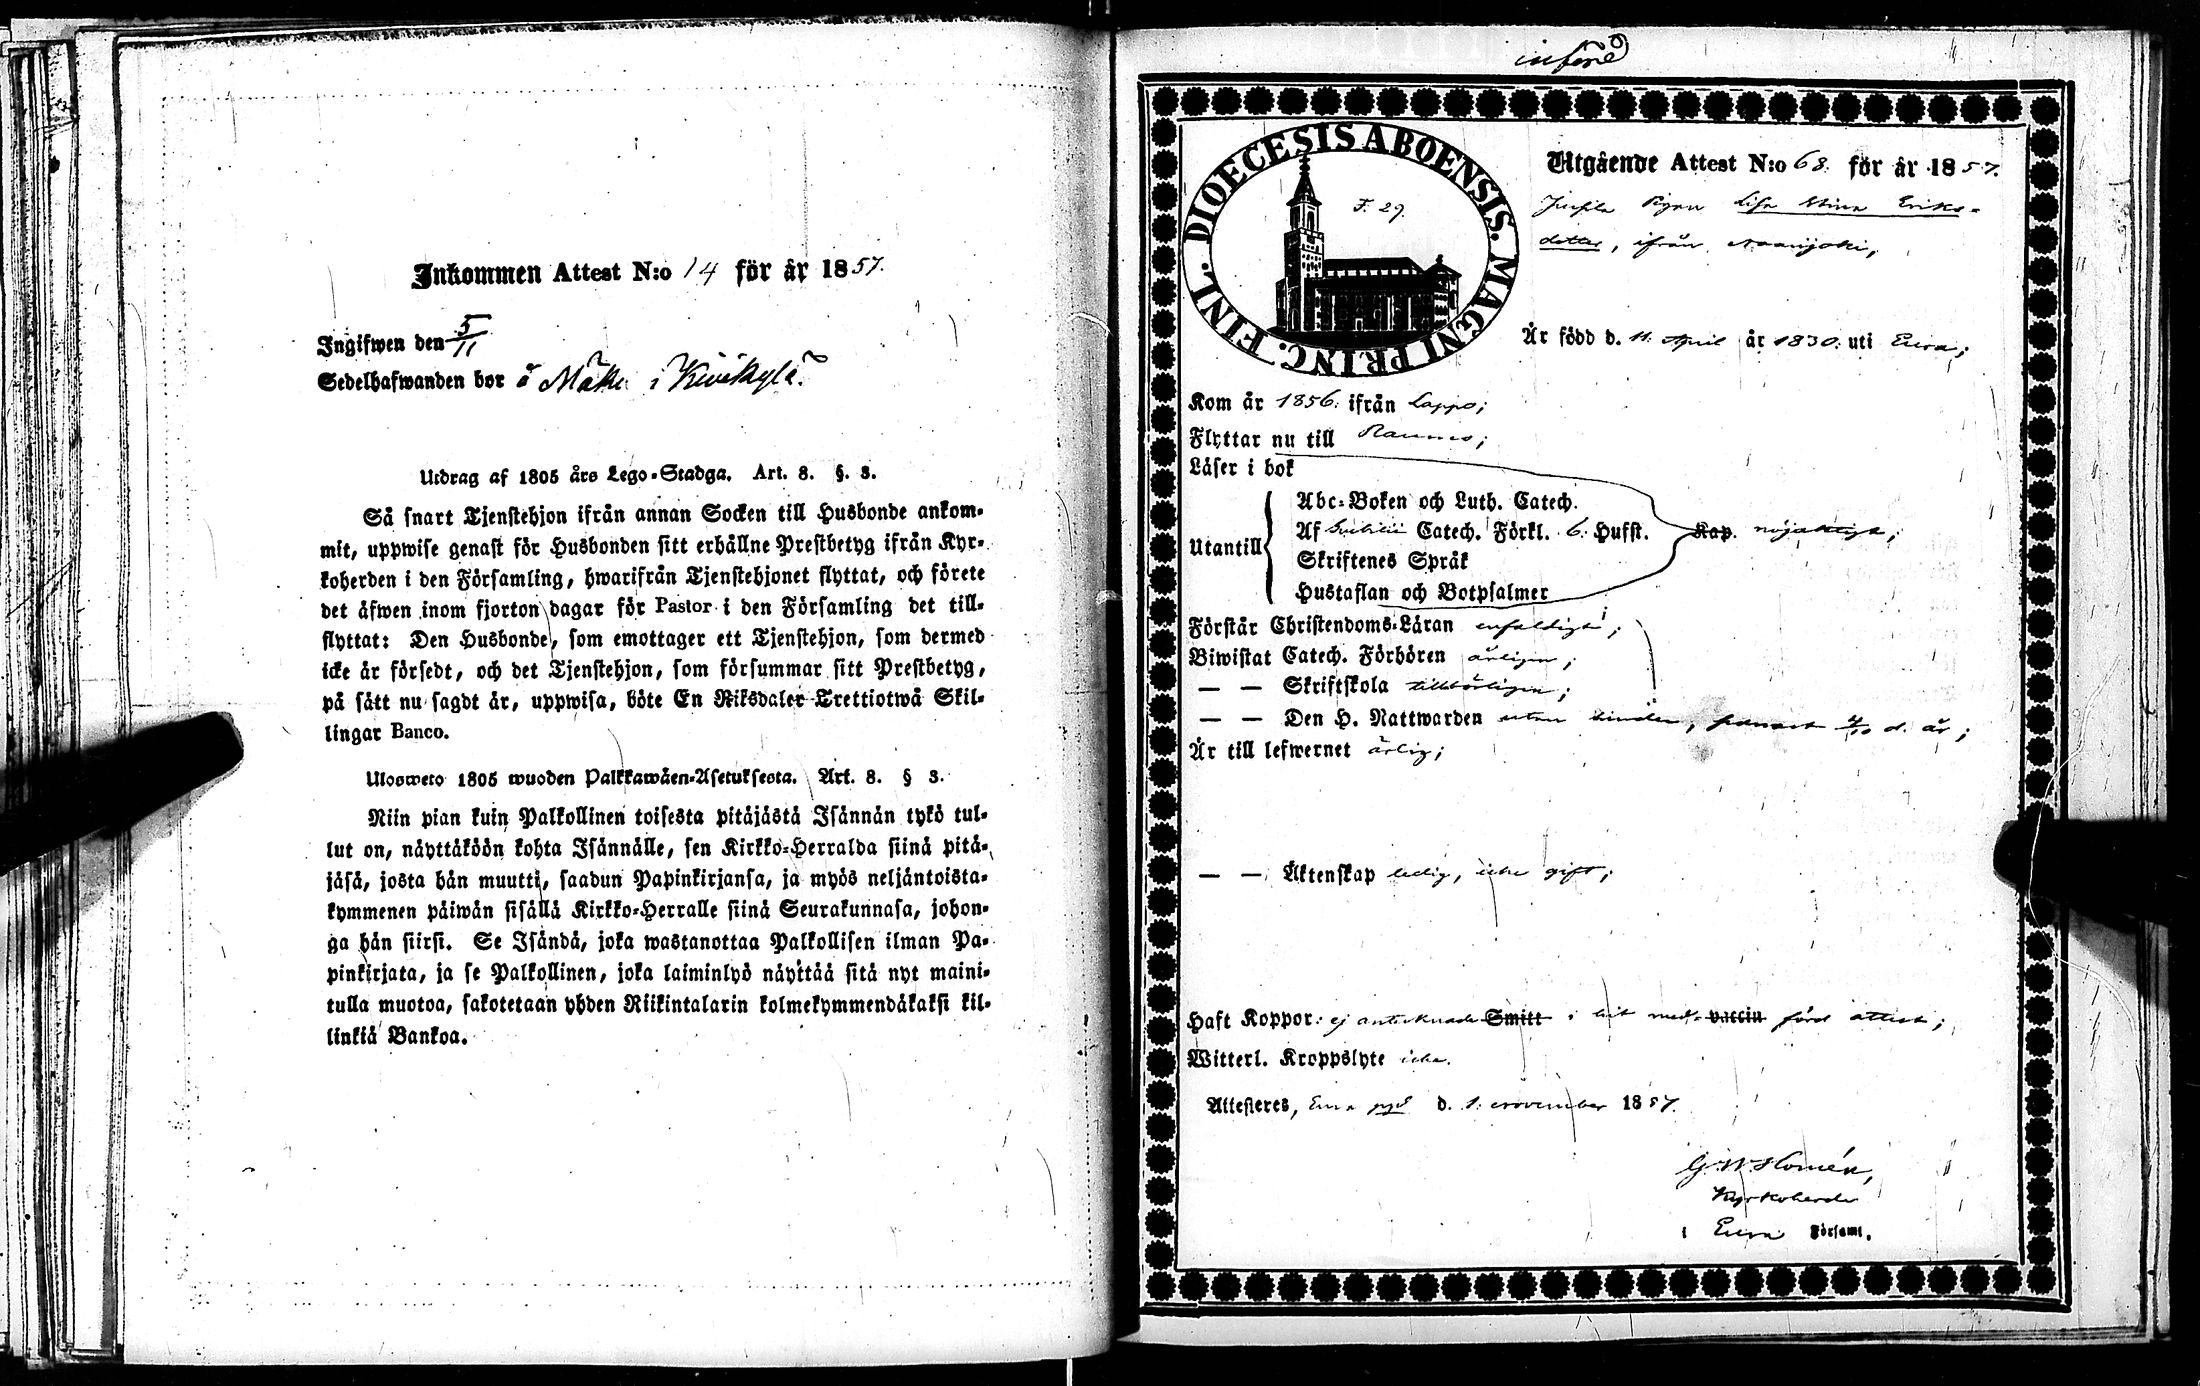 Inkommen Attest N:o 14 för år 1857.
Ingifwen den 5/11
Sedelhafwanden bor å Mäki i Kiwikylä.
Utdrag af 1805 års Lego-Stadga. Art. 8. §. 3.
Så snart Tjenstehjon ifrån annan Socken till Husbonde ankom-
mit, uppwise genast för Husbonden sitt erhållne Prestbetyg ifrån Kyr-
koherden i den Församling, hwarifrån Tjenstehjonet flyttat, och förete
det äfwen inom fjorton dagar för Pastor i den Församling det till-
flyttat: Den Husbonde, som emottager ett Tjenstehjon, som dermed
icke är försedt, och det Tjenstehjon, som försummar sitt Prestbetyg,
på sätt nu sagdt är, uppwisa, böte En Riksdaler Trettiotwå Skil-
lingar Banco.
Ulosweto 1805 wuoden Palkkawäen-Asetuksesta. Art. 8. § 3.
Niin pian kuin Palkollinen toisesta pitäjästä Isännän tykö tul-
lut on, näyttäköön kohta Isännälle, sen Kirkko-Herralda siinä pitä-
jäsä, josta hän muutti, saadun Papinkirjansa, ja myös neljäntoista-
kymmenen päiwän sisällä Kirkko-Herralle siinä Seurakunnasa, johon-
ga hän siirsi. Se Isändä, joka wastanottaa Palkollisen ilman Pa-
pinkirjata, ja se Palkollinen, joka laiminlyö näyttää sitä nyt maini-
tulla muotoa, sakotetaan yhden Riikintalarin kolmekymmendäkaksi kil-
linkiä Bankoa.
införd
DIOECESIS ABOENSIS. MAGNI PRINC. FINL.
F. 29.
Utgående Attest N:o 68. för år 1857.
Pigan Lisa Stina Eriks-
dotter, ifrån Naarijoki;
Är född d. 11. April år 1830. uti Eura;
Kom år 1856. ifrån Lappo;
Flyttar nu till Raumo;
Läser i bok
Abc-Boken och Luth. Catech.
Utantill Af Catech. Förkl. 6. Hufst. Kap. nöjaktigt;
Skriftenes Språk
Hustaflan och Botpsalmer
Förstår Christendoms-Läran enfaldigt;
Biwistat Catech. Förhören årligen;
— — Skriftskola tillbörligen;
— — Den H. Nattwarden utan hinder, senast d. år;
Är till lefwernet ärlig;
— — Äktenskap ledig, icke gift;
Haft Koppor: ej antecknade Smitt i hit med- vaccin förd attest;
Witterl. Kroppslyte icke.
Attesteres, Eura pgd d. 1. november 1857.
G. W. Homén,
Kyrkoherde
i Eura Församl.